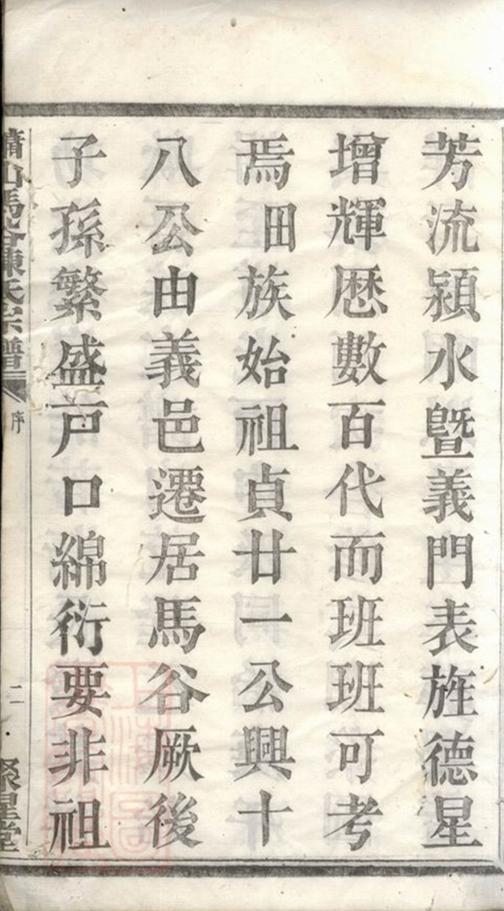 芳流潁水曁義門表旌德星
增輝厯數百代而班班可考
焉田族始祖貞廿一公興十
八公由義邑遷居馬谷厥後
子孫繁盛户口綿衍要非祖
蕭山馬谷陳氏宗譜
序
二
聚星堂